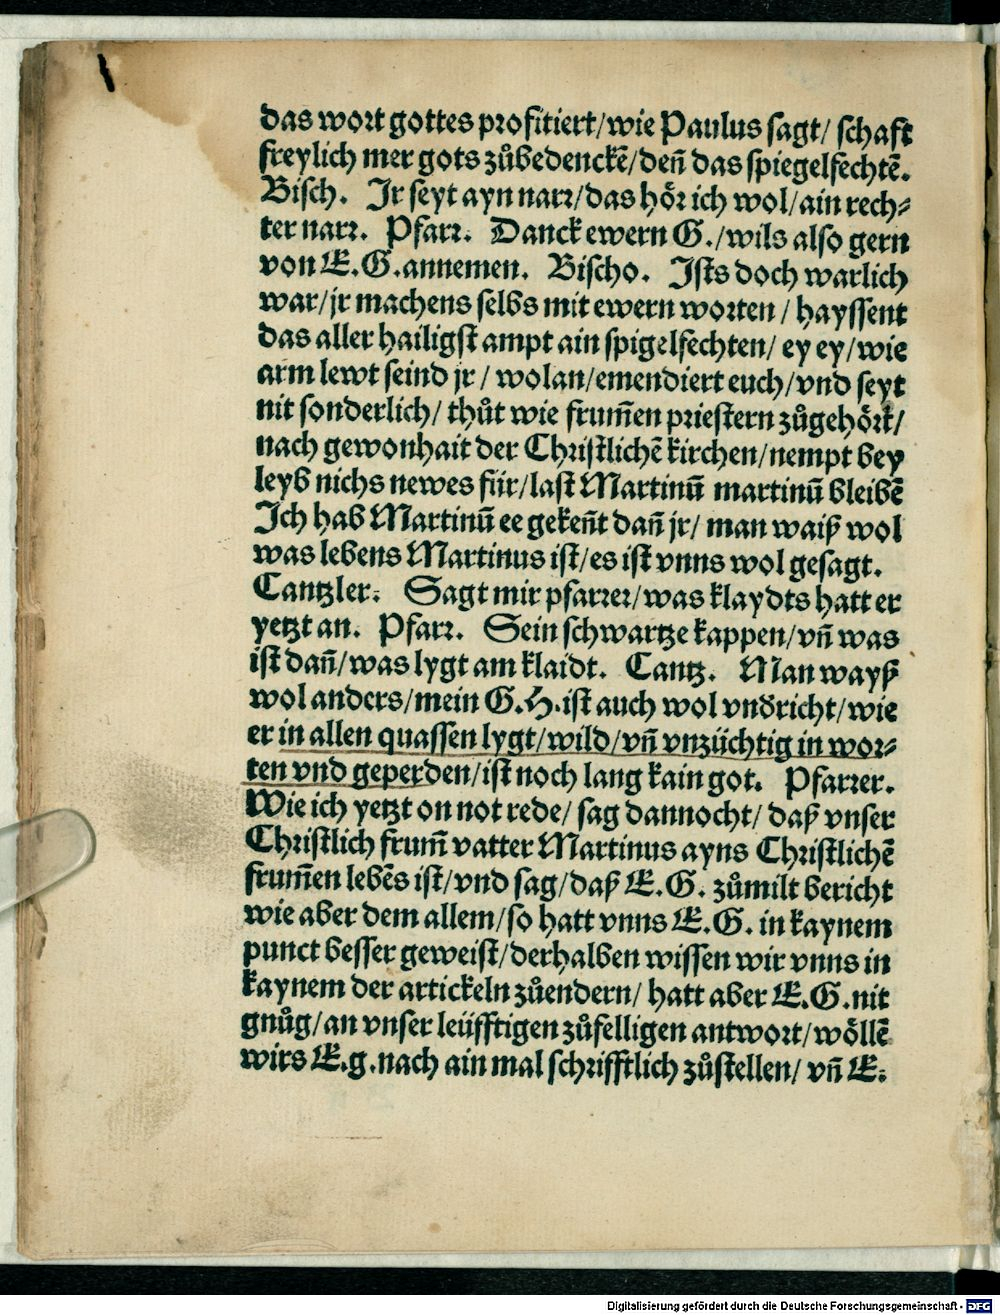 das wort gottes profitiert/wie Paulus sagt/ schaft
freylich mer gots zůbedenckē/deñ das spiegelfechtē.
Bisch. Jr seyt ayn narr/das hör ich wol/ain rech⸗
ter narr. Pfarr. Danck ewern G./wils also gern
von E.G.annemen. Bischo. Jsts doch warlich
war/jr machens selbs mit ewern worten / hayssent
das aller hailigst ampt ain spigelfechten/ ey ey/wie
arm lewt seind jr / wolan/emendiert euch/vnd seyt
nit sonderlich/ thůt wie frum̃en priestern zůgehört/
nach gewonhait der Christlichē kirchen/nempt bey
leyb nichs newes für/last Martinū martinū bleibē
Jch hab Martinū ee gekeñt dañ jr/ man waiß wol
was lebens Martinus ist/es ist vnns wol gesagt.
Cantzler. Sagt mir pfarrer/was klaydts hatt er
yetzt an. Pfarr. Sein schwartze kappen/vñ was
ist dañ/was lygt am klaidt. Cantz. Man wayß
wol anders/mein G.H.ist auch wol vnd̕richt/wie
er in allen quassen lygt/wild/vñ vnzüchtig in wor⸗
ten vnd geperden/ist noch lang kain got. Pfarrer.
Wie ich yetzt on not rede/ sag dannocht/ daß vnser
Christlich frum̃ vatter Martinus ayns Christlichē
frum̃en lebēs ist/vnd sag/daß E.G. zůmilt bericht
wie aber dem allem/so hatt vnns E.G. in kaynem
punct besser geweist/derhalben wissen wir vnns in
kaynem der artickeln zůendern/ hatt aber E.G.nit
gnůg/an vnser leüfftigen zůfelligen antwort/wöllē
wirs E.g.nach ain mal schrifftlich zůstellen/ vñ E.
Digitalisierung gefördert durch die Deutsche Forschungsgemeinschaft - DFG